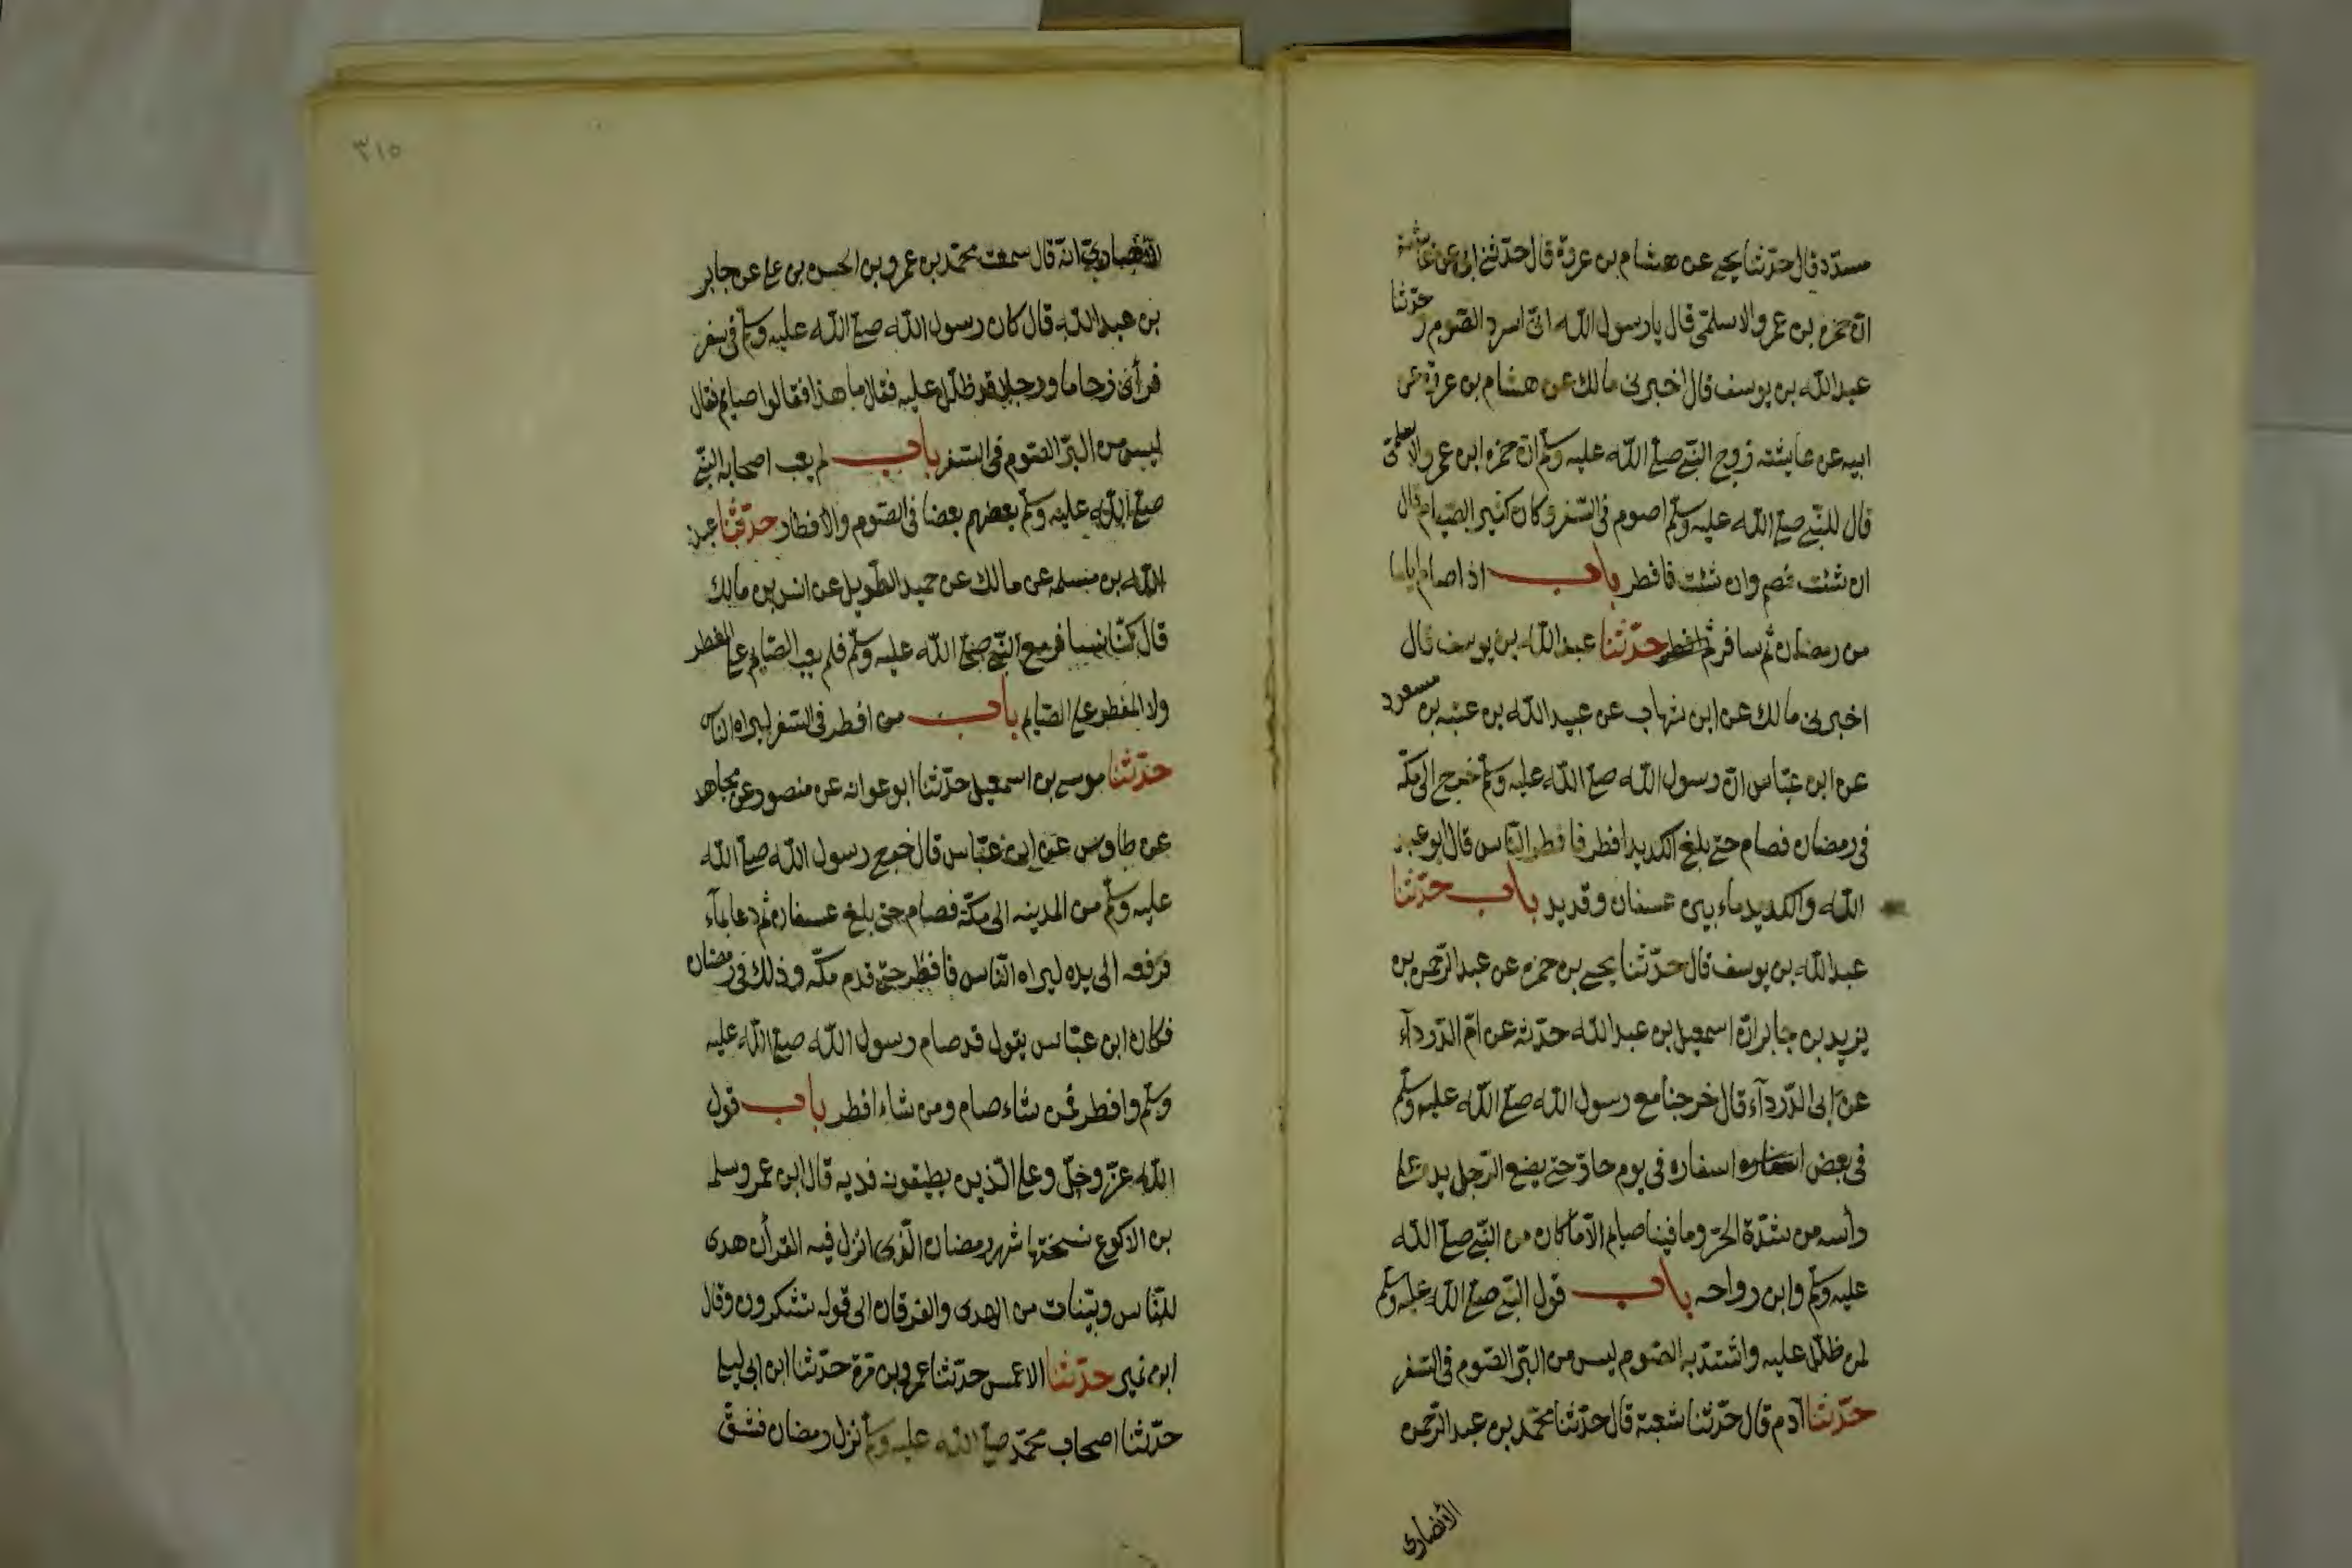 مسدد قال حدّثنا يحيى عن هشام بن عروة قال حدّثني ابى عن عائشة
انّ حمزه بن عمرو الاسلمّى قال يا رسول الله انّى اسرد الصّوم ح حدّثنا
عبد الله بن يوسف قال اخبرنى مالك عن هشام بن عروة عن
ابيه عن عايشة زوج النبّي صلّى الله عليه وسلّم انّ حمزه ابن عمرو الاسلمى
قال للنبّي صلّى الله عليه وسلّم اصوم فى السّفر وكان كثير الصّيام قال
ان شئت فصم وان شئت فافطر باب اذا صام اياما
من رمضان ثم سافر ثم افطر حدّثنا عبد الله بن يوسف قال
اخبرنى مالك عن ابن شهاب عن عبيد الله بن عتبه بن مسعود
عن ابن عبّاس انّ رسول الله صلّى الله عليه وسلّم خرج الى مكّه
فى رمضان فصام حتى بلغ الكديد افطر فافطر النّاس قال ابو عبد
الله والكديد ماء بين عسفان وقديد باب حدّثنا
عبد الله بن يوسف قال حدّثنا يحيى بن حمزه عن عبد الرّحمن بن
يزيد بن جابر انّ اسمعيل بن عبد الله حدّثه عن امّ الدّرداء
عن ابى الدّرداء قال خرجنا مع رسول الله صلّى الله عليه وسلّم
فى بعض اسفاره فى يوم حارّ حتى يضع الرّجل يده على
رأسه من شدّة الحرّ وما فينا صيام الّا ما كان من النبّي صلّى الله
عليه وسلّم وابن رواحه باب قول النبّي صلّى الله عليه وسلّم
لمن ظلّل عليه واشتدّ به الصّوم ليس من البرّ الصّوم فى السّفر
حدّثنا آدم قال حدّثنا شعبة قال حدّثنا محمّد بن عبد الرّحمن
الأنصارى
٣١٥
الأنصاريّ انّه قال سمعت محمّد بن عمرو بن الحسن بن على عن جابر
بن عبد الله قال كان رسول الله صلّى الله عليه وسلّم فى سفر
فرأى زحاما ورجلا قد ظلّل عليه فقال ما هذا فقالوا صايم فقال
ليس من البرّ الصّوم فى السّفر باب لم يعب اصحاب النبّي
صلّى الله عليه وسلّم بعضهم بعضا فى الصّوم والأفطار حدّثنا عبد
الله بن مسلمه عن مالك عن حميد الطّويل عن انس بن مالك
قال كنّا نسافر مع النبّي صلّى الله عليه وسلّم فلم يعب الصّايم على المفطر
ولا المفطر على الصّايم باب من افطر فى السّفر ليراه النّاس
حدّثنا موسى بن اسمعيل حدّثنا ابو عوانه عن منصور عن مجاهد
عن طاوس عن ابن عبّاس قال خرج رسول الله صلّى الله
عليه وسلّم من المدينه الى مكّة فصام حتى بلغ عسفان ثم دعا بماء
فرفعه الى يده ليراه النّاس فافطر حتى قدم مكّه وذلك فى رمضان
فكان ابن عبّاس يقول قد صام رسول الله صلّى الله عليه
وسلّم وافطر فمن شاء صام ومن شاء افطر باب قول
الله عزّ وجلّ وعلى الّذين يطيقونه فديه قال ابن عمر وسلمه
بن الاكوع نسختها شهر رمضان الّذى انزل فيه القرأن هدى
للنّاس وبيّنات من الهدى والفرقان الى قوله تشكرون وقال
ابن نمير حدّثنا الاعمش حدّثنا عمرو بن مرة حدّثنا ابن ابى ليلى
حدّثنا اصحاب محمّد صلّى الله عليه وسلّم نزل رمضان فشقّ